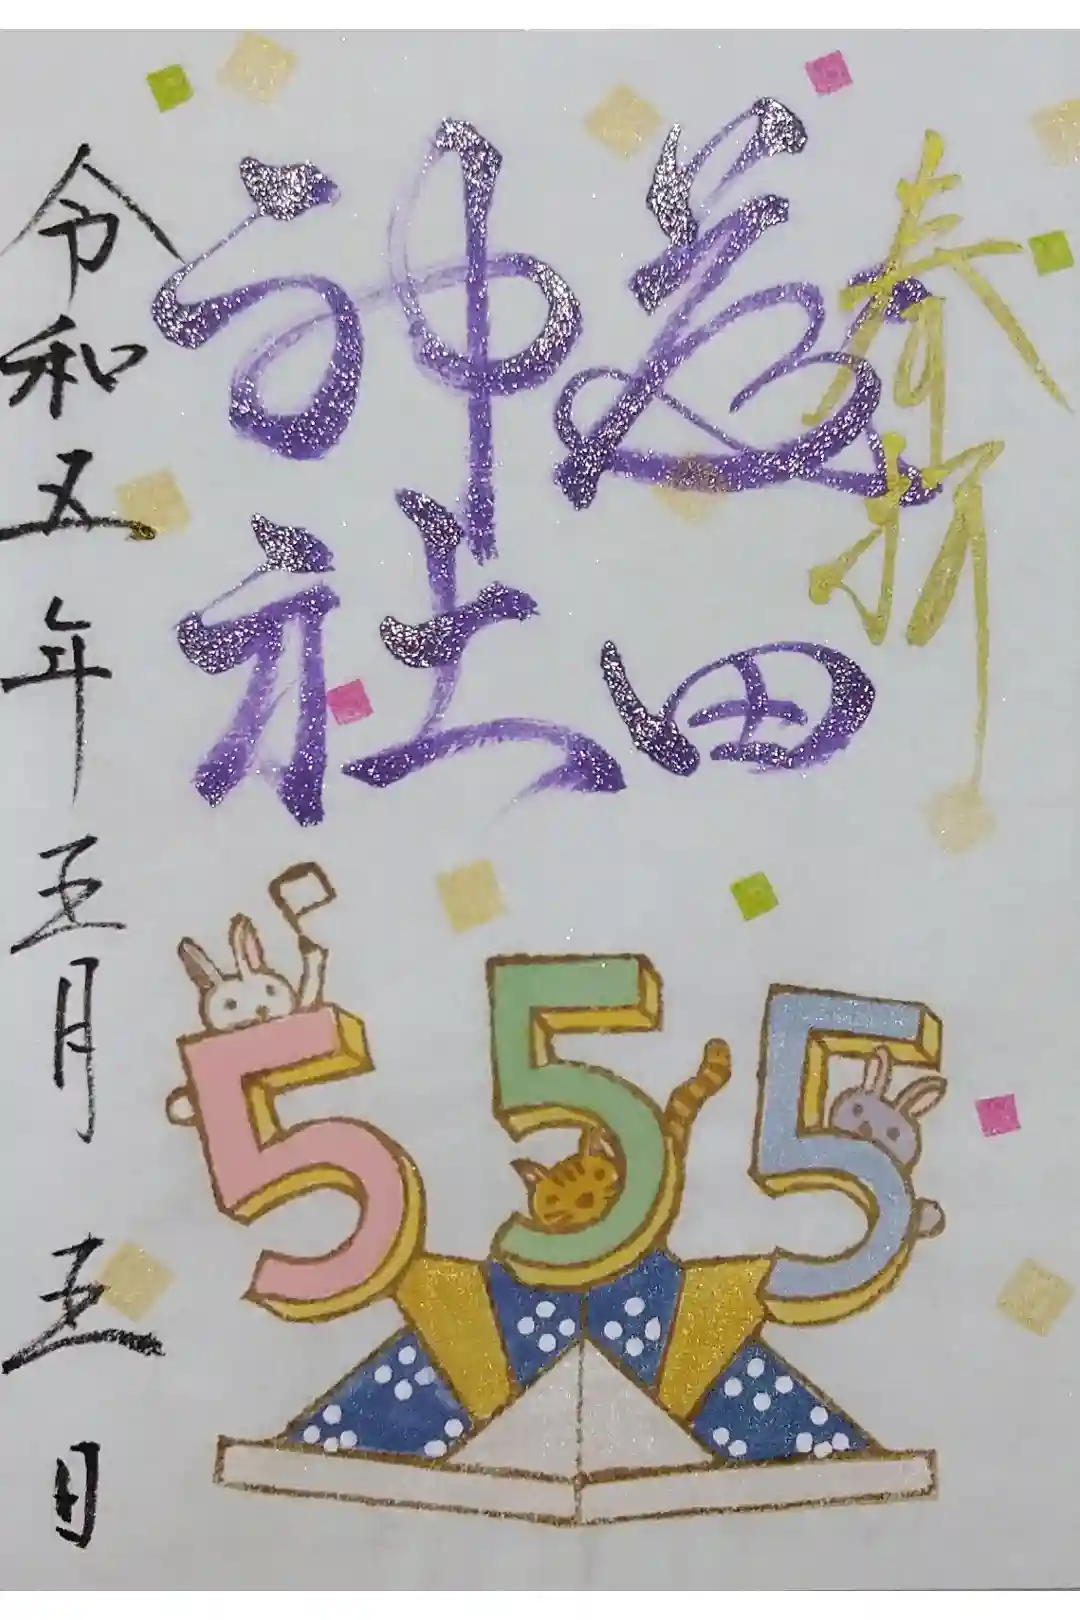 奉拝
田
神社
令和五年五月 五日
5 5 5